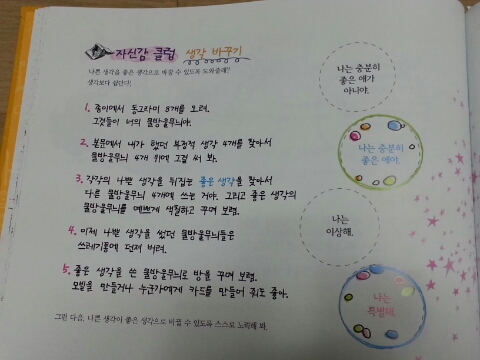 자신감 클럽 생각 바꾸기
나쁜 생각을 좋은 생각으로 바꿀 수 있도록 도와줄래?
생각보다 쉽단다!
1. 종이에서 동그라미 8개를 오려.
그것들이 너의 물방울무늬야.
2. 본문에서 내가 했던 부정적 생각 4개를 찾아서
물방울무늬 4개 위에 그걸 써 봐.
3. 각각의 나쁜 생각을 뒤집는 좋은 생각을 찾아서
다른 물방울무늬 4개에 쓰는 거야. 그리고 좋은 생각의
물방울무늬를 예쁘게 색칠하고 꾸며 보렴.
4. 이제 나쁜 생각을 썼던 물방울무늬들은
쓰레기통에 던져 버려.
5. 좋은 생각을 쓴 물방울무늬로 방을 꾸며 보렴.
모빌을 만들거나 누군가에게 카드를 만들어 줘도 좋아.
그런 다음, 나쁜 생각이 좋은 생각으로 바뀔 수 있도록 스스로 노력해 봐.
나는 충분히
좋은 애가
아니야.
나는 충분히
좋은 애야.
나는
이상해.
나는
특별해.